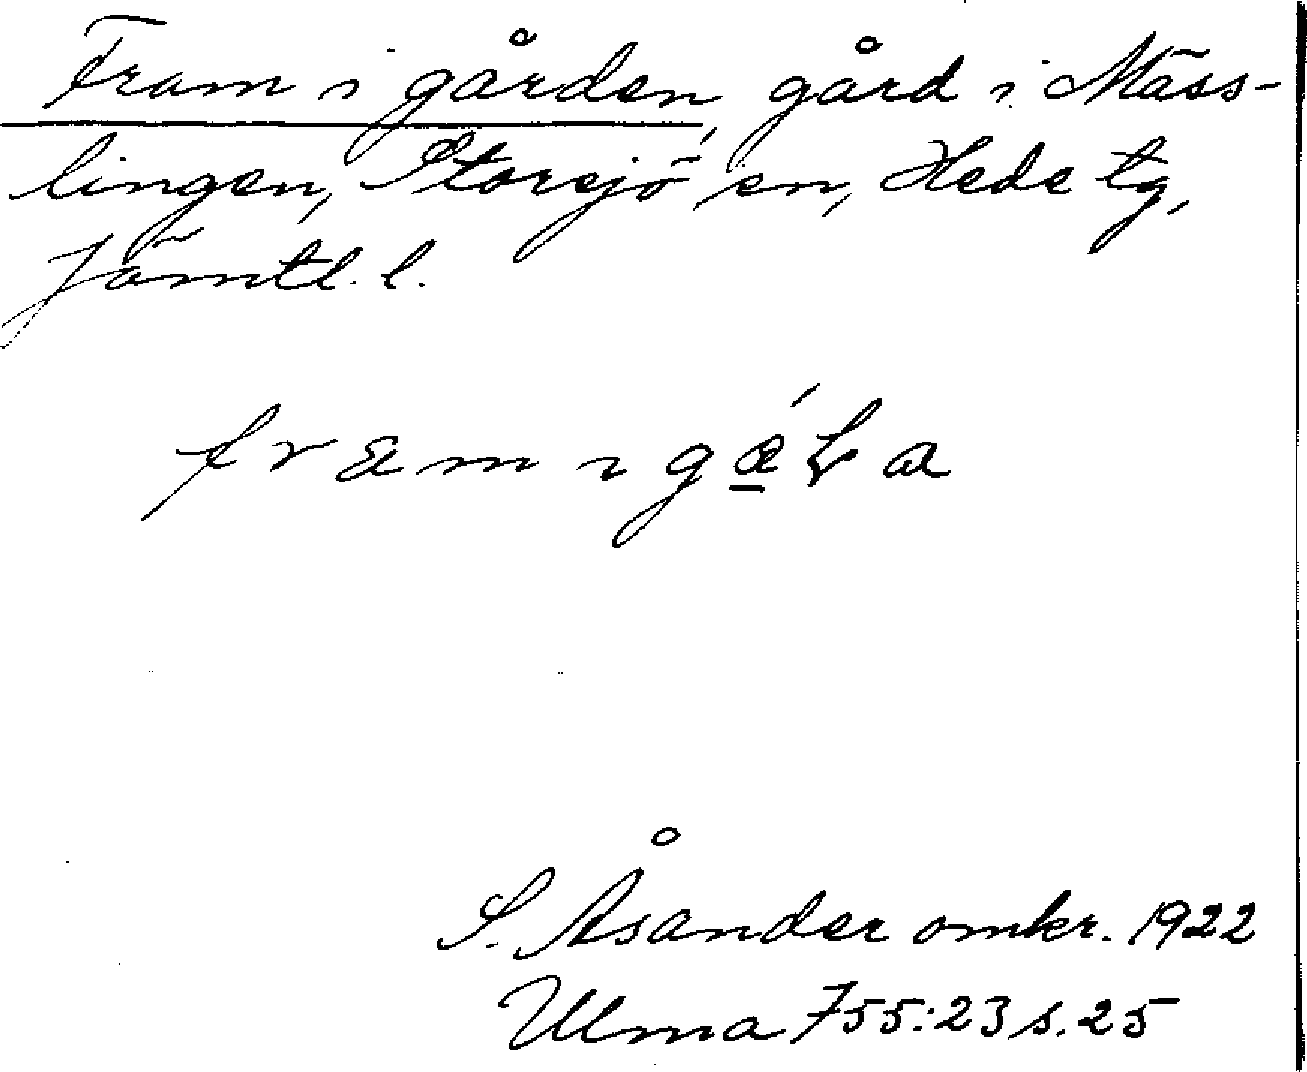 Fram i gården, gård i Mäss-
lingen, Storsjö sn, Hede tg,
Jämtl. l.
S. Åsander omkr. 1922
Ulma 755:23 s. 25